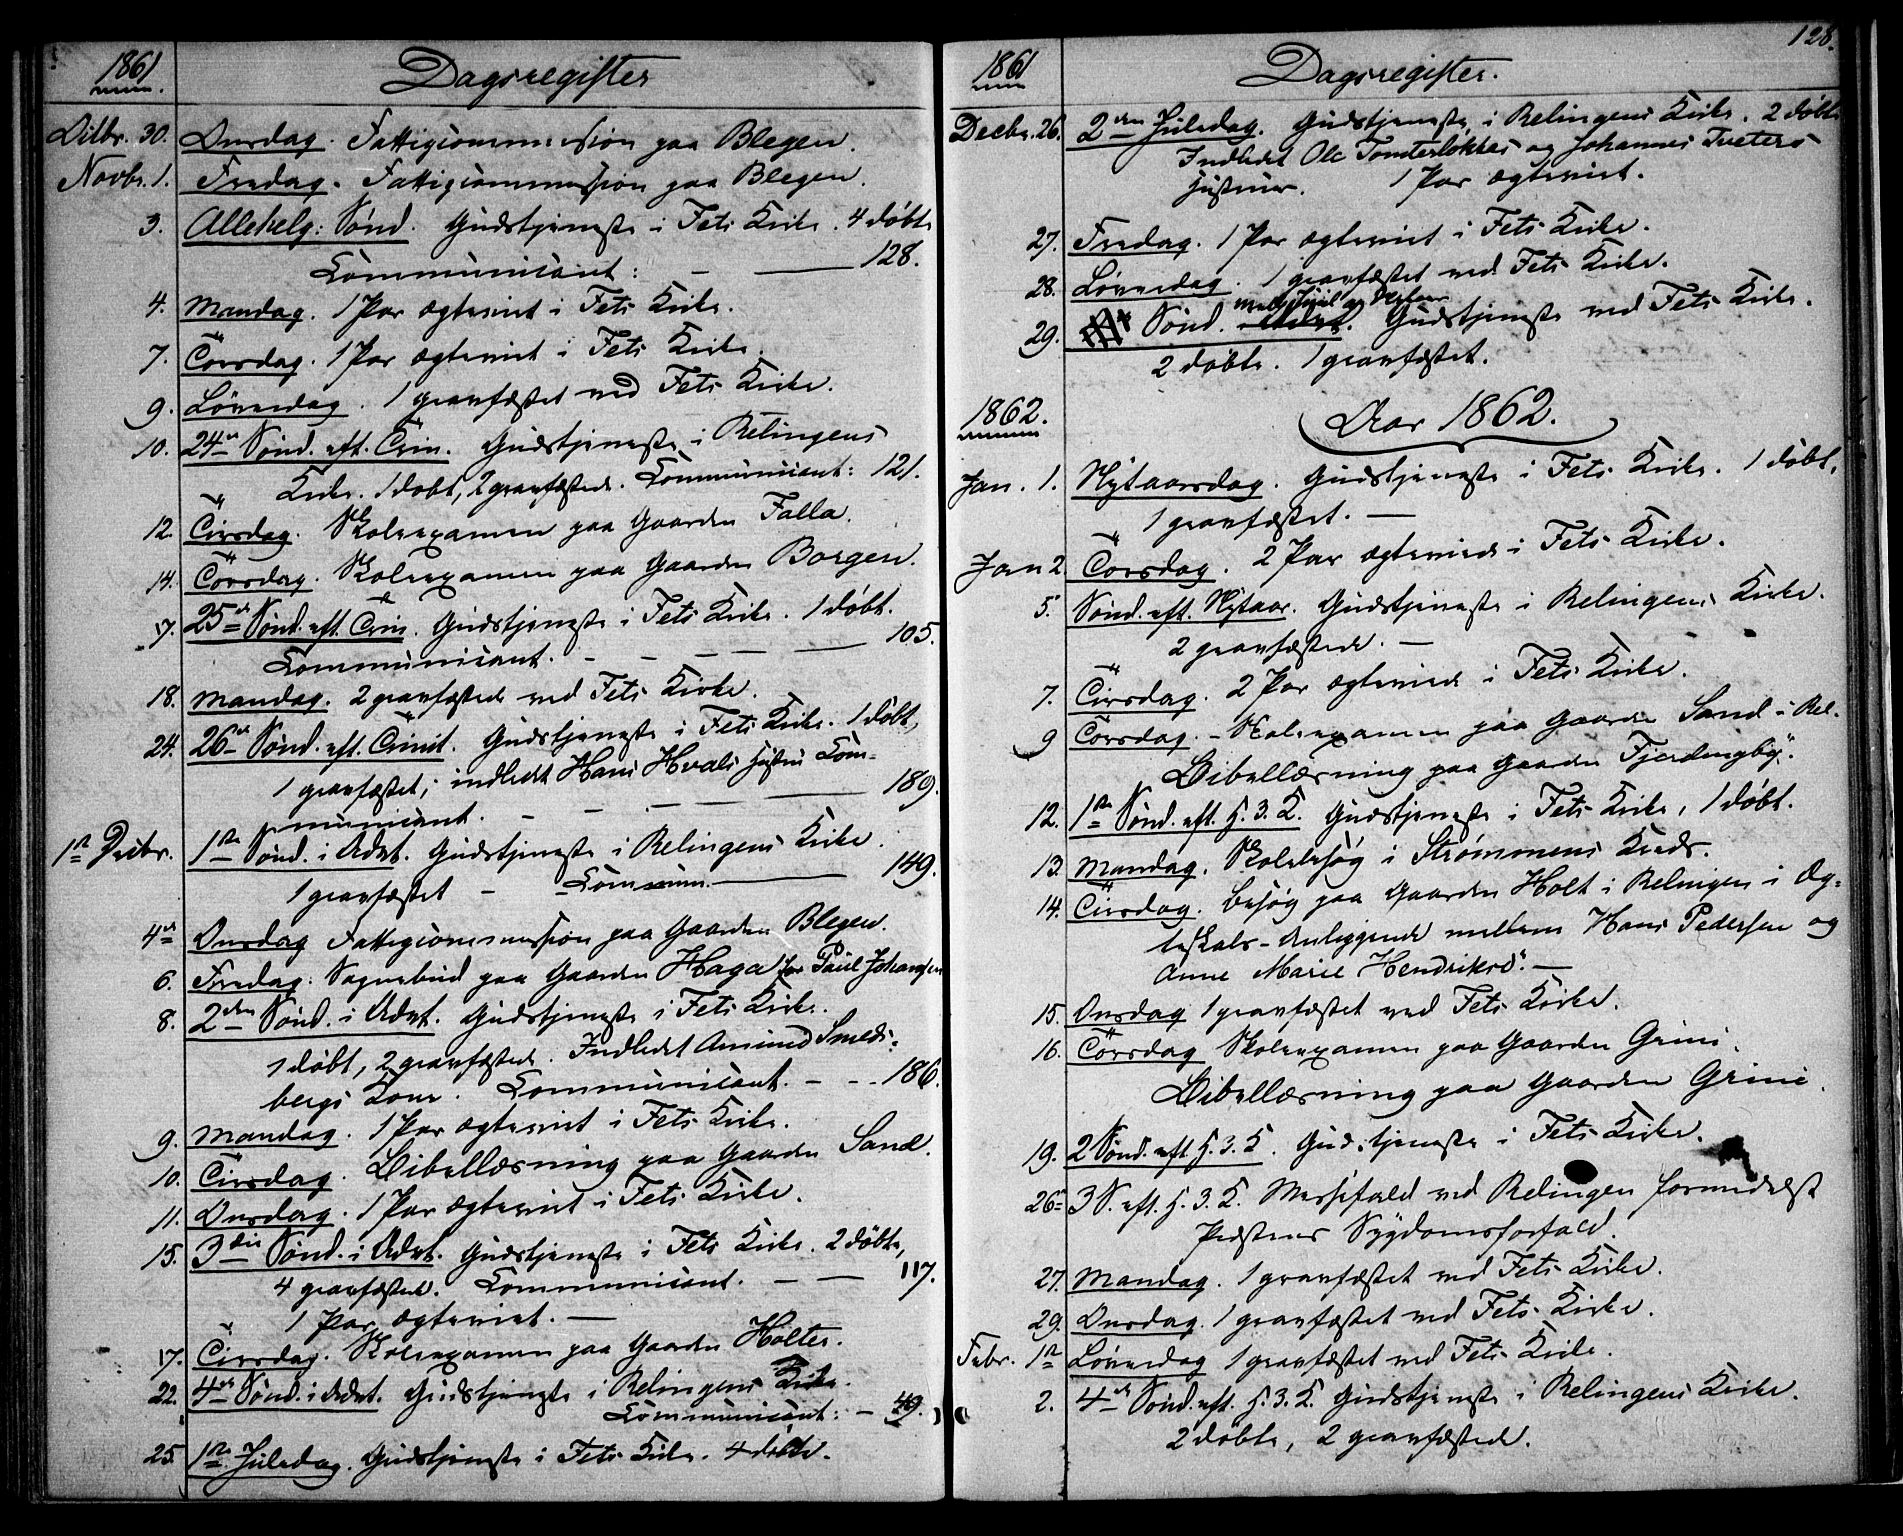 1861 Dagsregister
Octbr. 30. Onsdag. Fattigcommission paa Blegen.
Novbr. 1. Fredag. Fattigcommission paa Blegen.
3. Allehelg: Sönd. Gudstjeneste i Fets Kirke. 4 döbte
Communicant: — — 128.
4. Mandag. 1 Par ægteviet i Fets Kirke.
7. Torsdag. 1 Par ægteviet i Fets Kirke.
9. Löverdag. 1 gravfæstet ved Fets Kirke.
10. 24de Sönd. eft. Trin. Gudstjeneste i Relingens
Kirke. 1 döbt, 2 gravfæstede. Communicant: 121.
12. Tirsdag. Skoleexamen paa Gaarden Falla.
14. Torsdag. Skoleexamen paa Gaarden Borgen.
17. 25de Sönd. eft. Trin. Gudstjeneste i Fets Kirke. 1 döbt.
Communicant. — — — — 105.
18. Mandag. 2 gravfæstede ved Fets Kirke.
24. 26de Sönd. eft. Trinit. Gudstjeneste i Fets Kirke. 1 döbt,
1 gravfæstet; indledet Hans Hvals Hustru Com-
municant. — — — — 189.
1ste Decbr. 1ste Sönd. i Advt. Gudstjeneste i Relingens Kirke.
1 gravfæstet — Commun. — 149.
4de Onsdag Fattigcommission paa Gaarden Blegen.
6. Fredag. Sognebud paa Gaarden Haga for Paul Johansen
8. 2den Sönd. i Advt. Gudstjeneste i Fets Kirke.
1 döbt, 2 gravfæstede. Indledet Amund Smeds-
bergs Kone. Communicant. — — 186.
9. Mandag. 1 Par ægteviet i Fets Kirke.
10. Tirsdag. Bibellæsning paa Gaarden Sand.
11. Onsdag. 1 Par ægteviet i Fets Kirke.
15. 3die Sönd. i Advt. Gudstjeneste i Fets Kirke. 2 döbte,
4 gravfæstede. Communicant. — — 117.
1 Par ægteviet. —
17. Tirsdag. Skoleexamen paa Gaarden Holter.
22. 4de Sönd. i Advt. Gudstjeneste i Relingens Kirke.
Communicant: — 49.
25. 1ste Juledag. Gudstjeneste i Fets Kirke. 4 döbte.
128.
1861 Dagsregister.
Decbr. 26. 2den Juledag. Gudstjeneste i Relingens Kirke. 2 döbte
Indledet Ole Tomterlökkes og Johannes Tveters
Hustruer. 1 Par ægteviet.
27. Fredag. 1 Par ægteviet i Fets Kirke.
28. Löverdag. 1 gravfæstet ved Fets Kirke.
mell. Juul og Nytaar
29. Sönd. i Advt. Gudstjeneste ved Fets Kirke.
2 döbte. 1 gravfæstet.
1862. Aar 1862.
Jan. 1. Nytaarsdag. Gudstjeneste i Fets Kirke. 1 döbt,
1 gravfæstet. —
Jan 2. Torsdag. 2 Par ægteviede i Fets Kirke.
5. Sönd. eft. Nytaar. Gudstjeneste i Relingens Kirke.
2 gravfæstede. —
7. Tirsdag. 2 Par ægteviede i Fets Kirke.
9 Torsdag. - Skoleexamen paa Gaarden Sand i Rel.
Bibellæsning paa Gaarden Fjerdingby.
12. 1ste Sönd. eft. H. 3. K. Gudstjeneste i Fets Kirke, 1 döbt.
13. Mandag. Skolebesög i Strömmens Kreds.
14. Tirsdag. Besög paa Gaarden Holt i Relingen i Æg-
teskabs-Anliggende mellem Hans Pedersen og
Anne Marie Hendriksd. —
15. Onsdag 1 gravfæstet ved Fets Kirke.
16. Torsdag Skoleexamen paa Gaarden Grini.
Bibellæsning paa Gaarden Grini.
19. 2 Sönd. eft. H. 3. K. Gudstjeneste i Fets Kirke.
26de 3 S. eft. H. 3. K. Messefald ved Relingen formedelst
Præstens Sygdomsforfald.
27. Mandag. 1 gravfæstet ved Fets Kirke.
29. Onsdag. 1 gravfæstet ved Fets Kirke.
Febr. 1ste Löverdag 1 gravfæstet ved Fets Kirke.
2. 4de Sönd. eft. H. 3. K. Gudstjeneste i Relingens Kirke.
2 döbte, 2 gravfæstede.